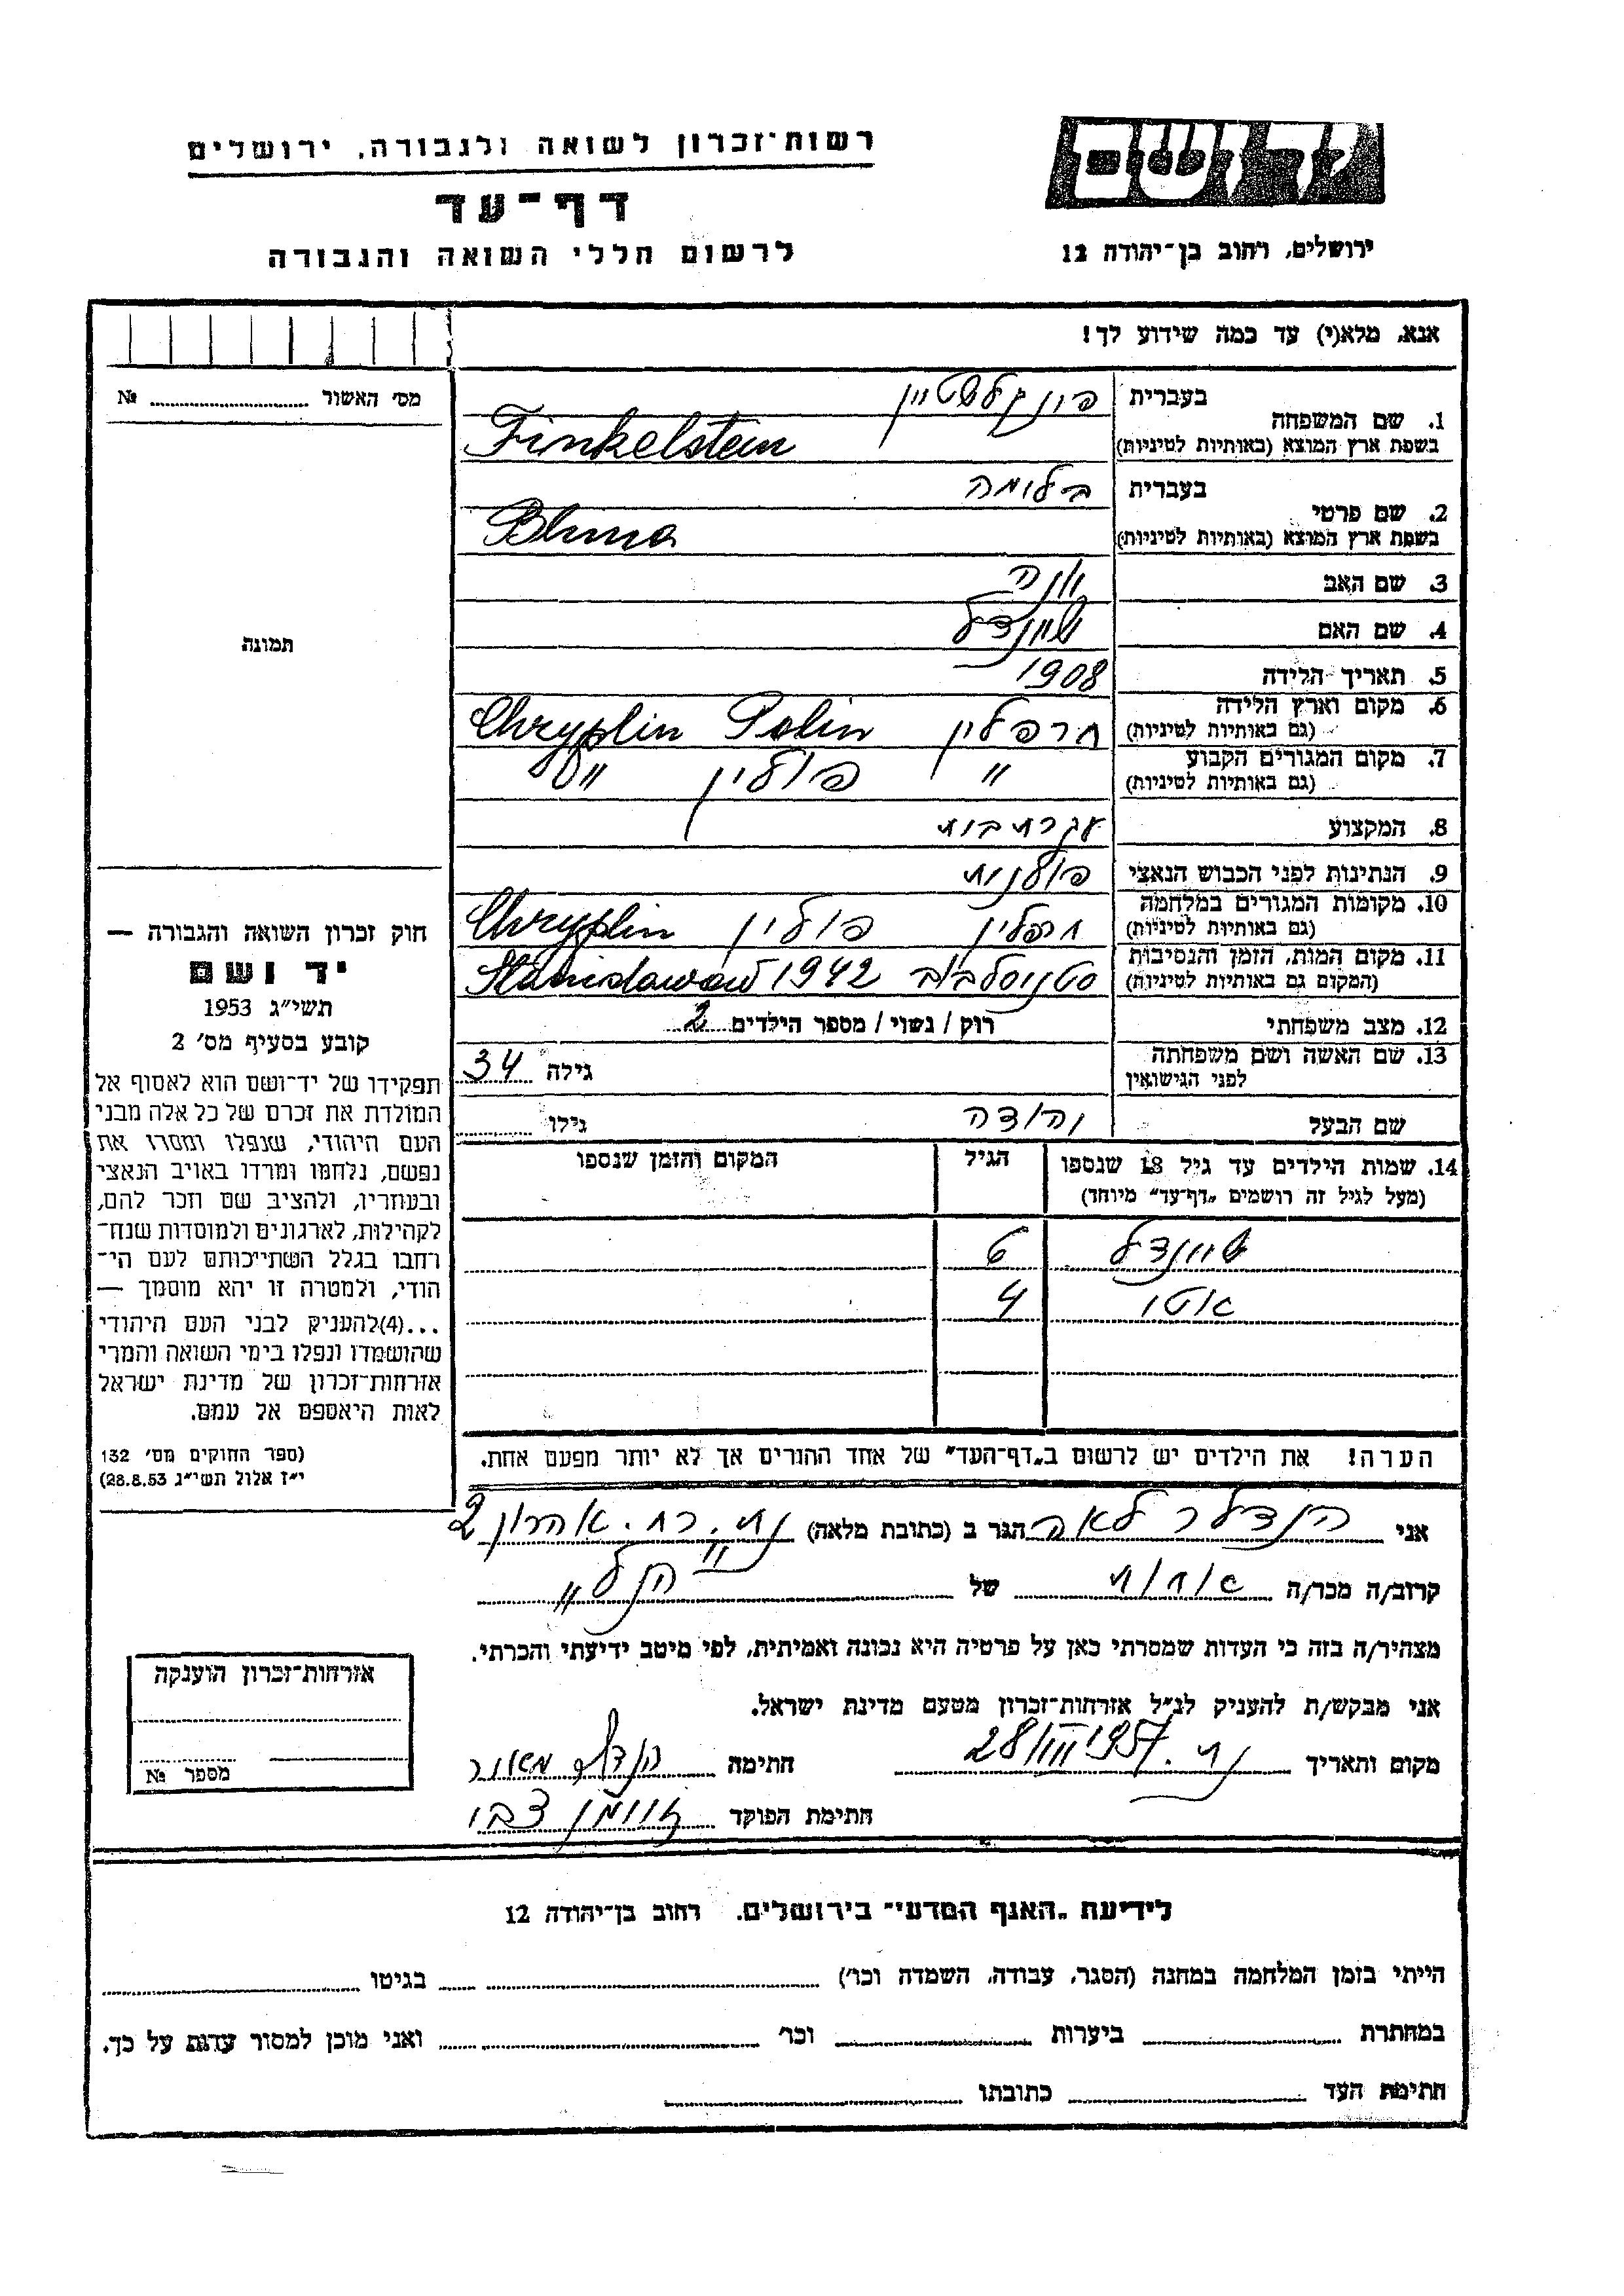 רשות־זכרון לשואה ולגבורה, ירושלים
דף־עד
לרשום חללי השואה והגבורה
יד ושם
ירושלים, רחוב בן־יהודה 12
אנא, מלא(י) עד כמה שידוע לך!
מס׳ האשור № 
תמונה
1. שם המשפחה
בעברית פינקלשטיין
בשפת ארץ המוצא (באותיות לטיניות) Finkelstein
2. שם פרטי
בעברית בלומה
בשפת ארץ המוצא (באותיות לטיניות) Bluma
3. שם האב יונה
4. שם האם שיינדל
5. תאריך הלידה 1908
6. מקום וארץ הלידה (גם באותיות לטיניות) חרפלין Chryplin Polin
7. מקום המגורים הקבוע (גם באותיות לטיניות) " פולין "
8. המקצוע עקרת בית
9. הנתינות לפני הכבוש הנאצי פולנית
10. מקומות המגורים במלחמה (גם באותיות לטיניות) חרפלין פולין Chryplin
11. מקום המות, הזמן והנסיבות (המקום גם באותיות לטיניות) סטניסלבוב 1942 Stanislawow
12. מצב משפחתי רוק / נשוי / מספר הילדים 2
13. שם האשה ושם משפחתה לפני הנישואין גילה 34
שם הבעל יהודה גילו
14. שמות הילדים עד גיל 18 שנספו הגיל המקום והזמן שנספו
(מעל לגיל זה רושמים "דף־עד" מיוחד)
שיינדל 6
איטי 4
הערה! את הילדים יש לרשום ב"דף־העד" של אחד ההורים אך לא יותר מפעם אחת.
חוק זכרון השואה והגבורה —
יד ושם
תשי״ג 1953
קובע בסעיף מס׳ 2
תפקידו של יד־ושם הוא לאסוף אל
המולדת את זכרם של כל אלה מבני
העם היהודי, שנפלו ומסרו את
נפשם, נלחמו ומרדו באויב הנאצי
ובעוזריו, ולהציב שם וזכר להם,
לקהילות, לארגונים ולמוסדות שנח־
רבו בגלל השתייכותם לעם הי־
הודי, ולמטרה זו יהא מוסמך —
...(4)להעניק לבני העם היהודי
שהושמדו ונפלו בימי השואה והמרי
אזרחות־זכרון של מדינת ישראל
לאות היאספם אל עמם.
(ספר החוקים מס׳ 132
י״ז אלול תשי״ג 28.8.53)
אני הנדלר לאה הגר ב (כתובת מלאה) נת. רח. אהרון 2
קרוב/ה מכר/ה אחות של הנ"ל
מצהיר/ה בזה כי העדות שמסרתי כאן על פרטיה היא נכונה ואמיתית, לפי מיטב ידיעתי והכרתי.
אני מבקש/ת להעניק לנ״ל אזרחות־זכרון מטעם מדינת ישראל.
מקום ותאריך נת. 28/III 1957 חתימה
חתימת הפוקד צבי
אזרחות־זכרון הוענקה
מספר №
לידיעת "האגף המדעי" בירושלים, רחוב בן־יהודה 12
הייתי בזמן המלחמה במחנה (הסגר, עבודה, השמדה וכו׳) בגיטו
במחתרת ביערות וכו׳ ואני מוכן למסור עדות על כך.
חתימת העד כתובתו